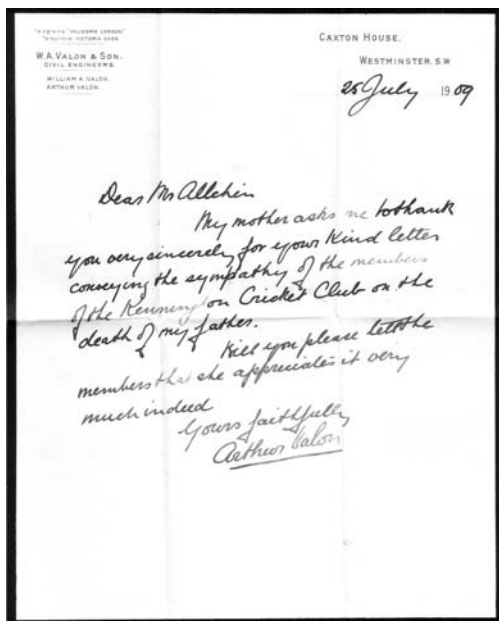 CAXTON HOUSE.
WESTMINSTER. S.W
W.A. VALON & SON.
CIVIL ENGINEERS.
WILLIAM A. VALON.
ARTHUR VALON
25 July 1909
Dear Mr Allchin
My mother asks me to thank
you very sincerely for your kind letter
conveying the sympathy of the members
of the Kennington Cricket Club on the
death of my father.
Will you please tell the
members that she appreciates it very
much indeed
Yours faithfully
Arthur Valon